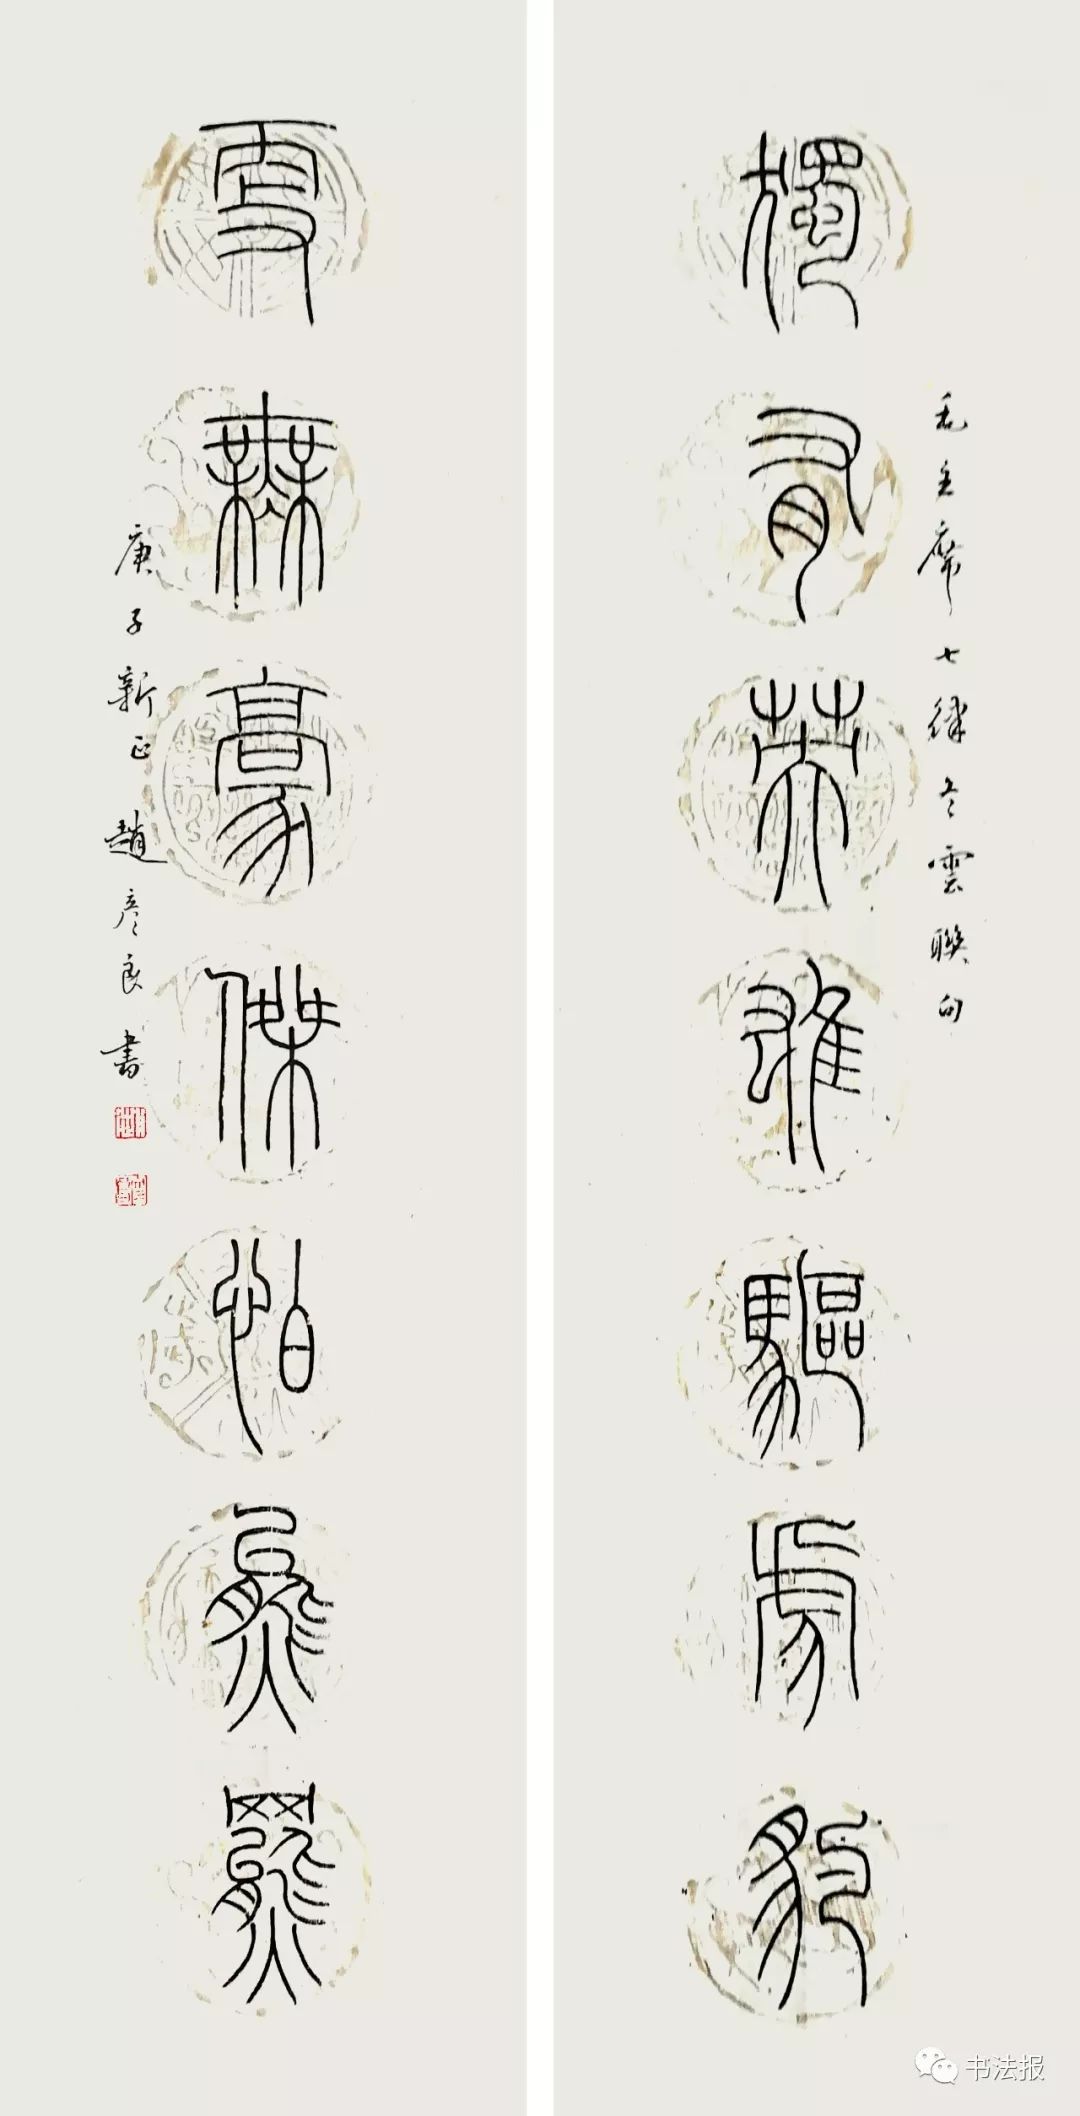 獨有英雄驅虎豹
毛主席七律冬雲聯句
更無豪傑怕熊羆
庚子新正趙彥良書
书法报